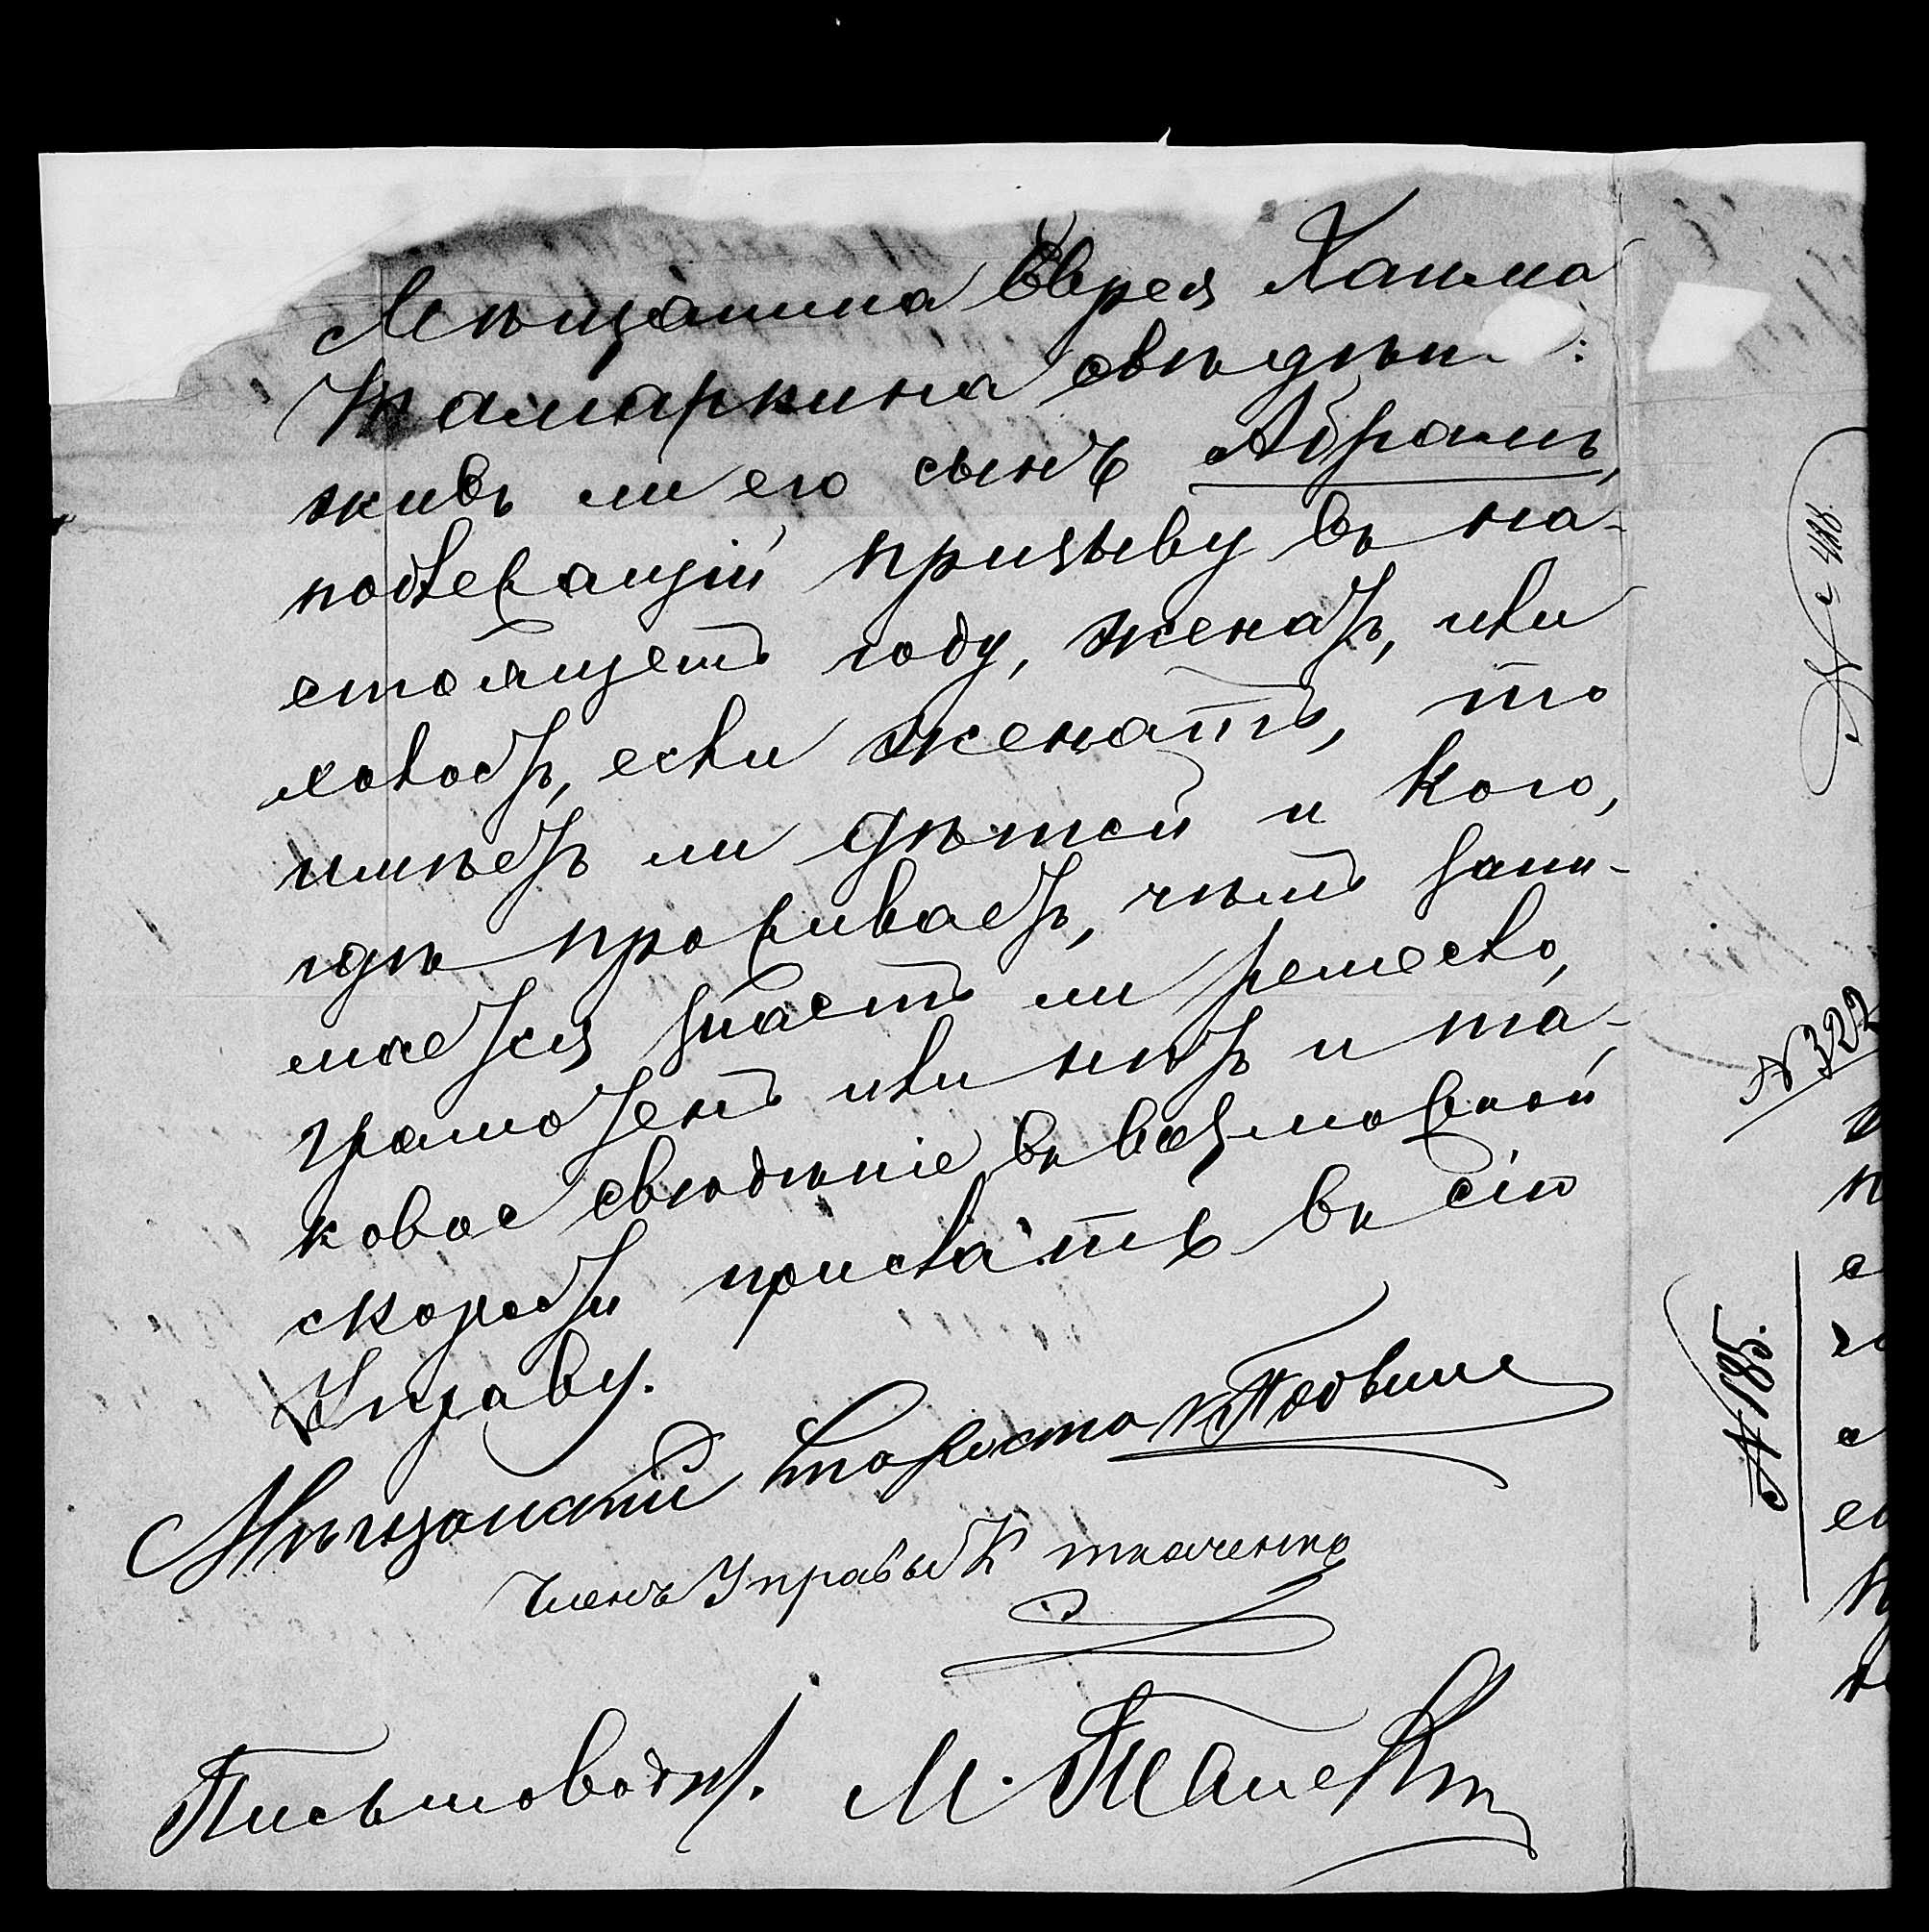 Мѣщанина Еврея Хаима
Тамаркина свѣдѣн :
живъ ли его сынъ Абрамъ,
подлежащій призыву въ на-
стоящемъ году, женатъ, или
холостъ, если женатъ, то
имѣетъ ли дѣтей и кого,
гдѣ проживаетъ, чѣмъ зани-
мается знаетъ ли ремесло,
грамотенъ или нѣтъ и та-
ковое свѣдѣніе въ возможной
скорости прислать въ сію
Управу.
Мѣщанскій Староста
Членъ Управы К Ткаченко
Письмовод. М.
№ 418.
№ 322